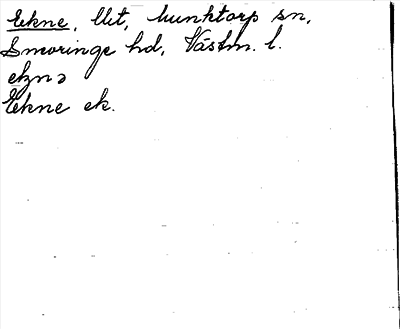 Ekne, llit, Munktorp sn,
Snevringe hd, Västm. l.
ekno
Ekne ek.